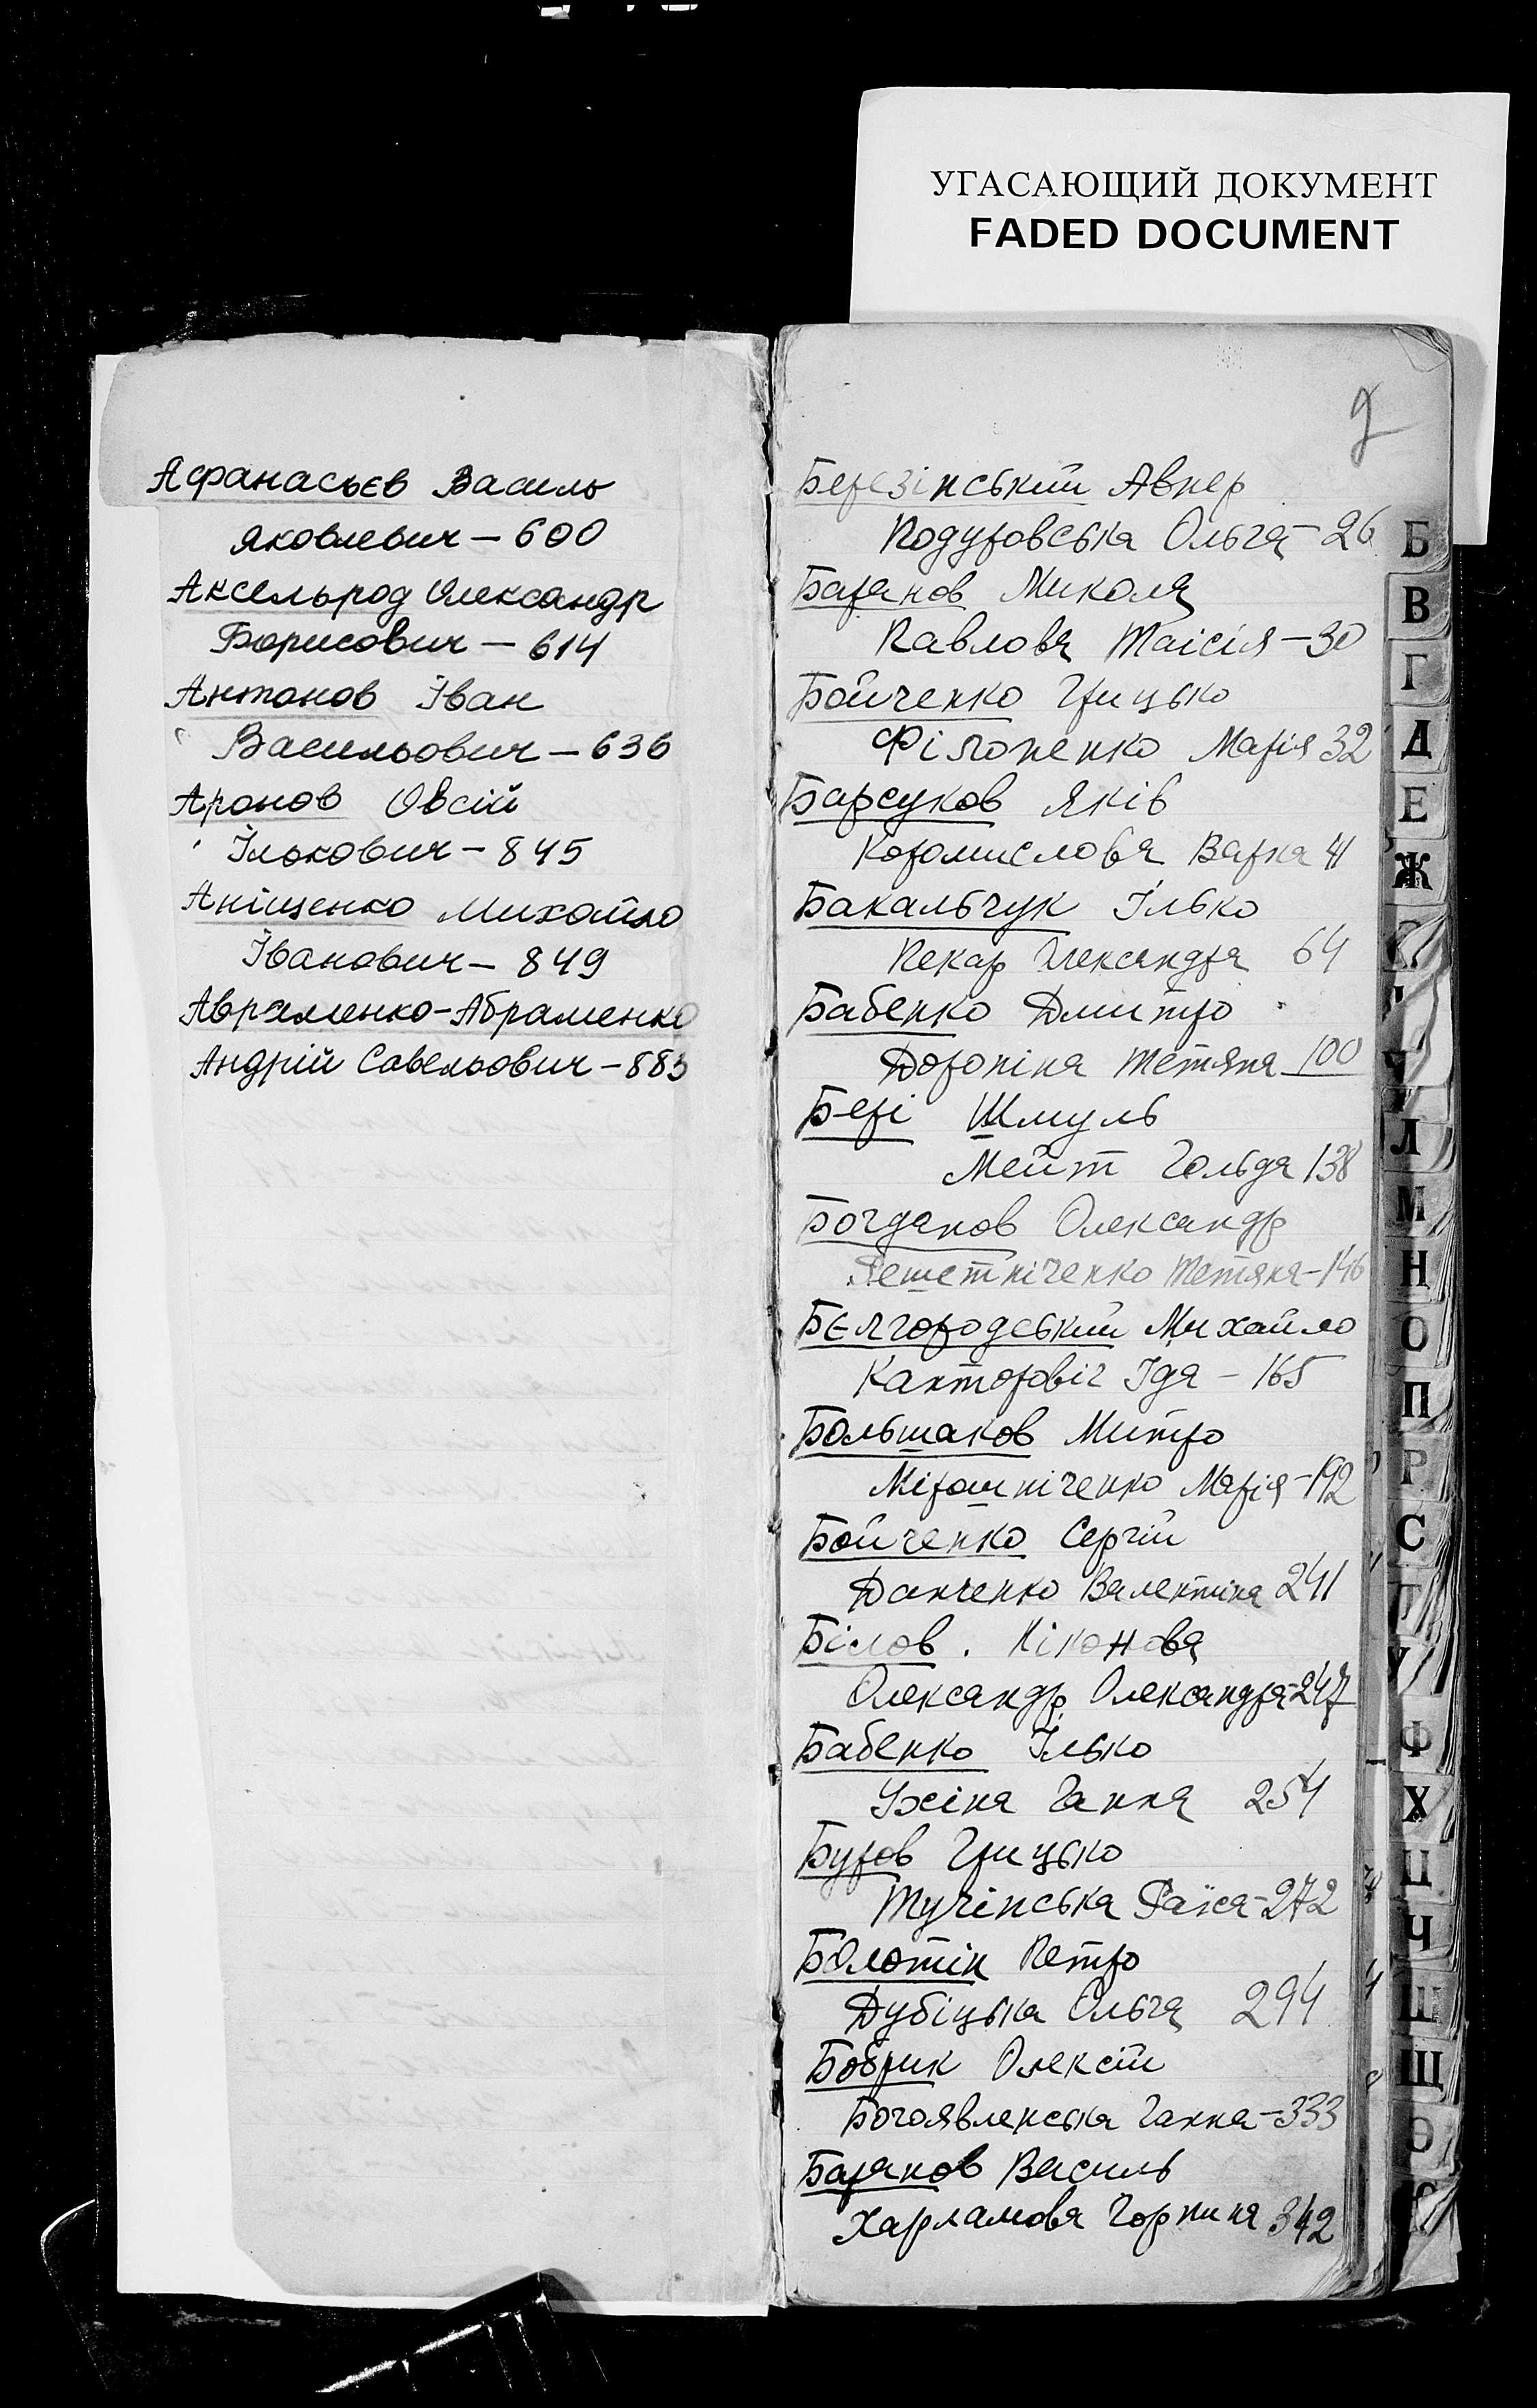 УГАСАЮЩИЙ ДОКУМЕНТ
FADED DOCUMENT
Афанасьєв Василь
Яковлевич – 600
Аксельрод Олександр
Борисович – 614
Антонов Іван
Васильович – 636
Аронов Овсій
Ількович – 845
Аніщенко Михайло
Іванович – 849
Авраменко-Абраменко
Андрій Савельович – 883
2
Березінський Авнер
Подуровська Ольга – 26
Баранов Микола
Павлова Таісія – 30
Бойченко Грицько
Філоненко Марія 32
Барсуков Яків
Коромислова Варка 41
Бакальчук Ілько
Пекар Олександра 64
Бабенко Дмитро
Дороніна Тетяна 100
Бері Шмуль
Мейт Гольда 138
Богданов Олександр
Решетніченко Тетяна – 146
Бєлгородський Михайло
Канторовіч Іда – 165
Большаков Митро
Мірошніченко Марія – 192
Бойченко Сергій
Данченко Валентина 241
Білов . Ніконова
Олександр Олександра – 247
Бабенко Ілько
Ганна 254
Буров Грицько
Тучінська Раїса – 272
Болотін Петро
Дубіцька Ольга 294
Бобрик Олексій
Богоявленська Ганна – 333
Баранов Василь
Харламова Горпина 342
Б
В
Г
Д
Е
Ж
Л
М
Н
О
П
Р
С
Т
У
Ф
Х
Ц
Ч
Ш
Щ